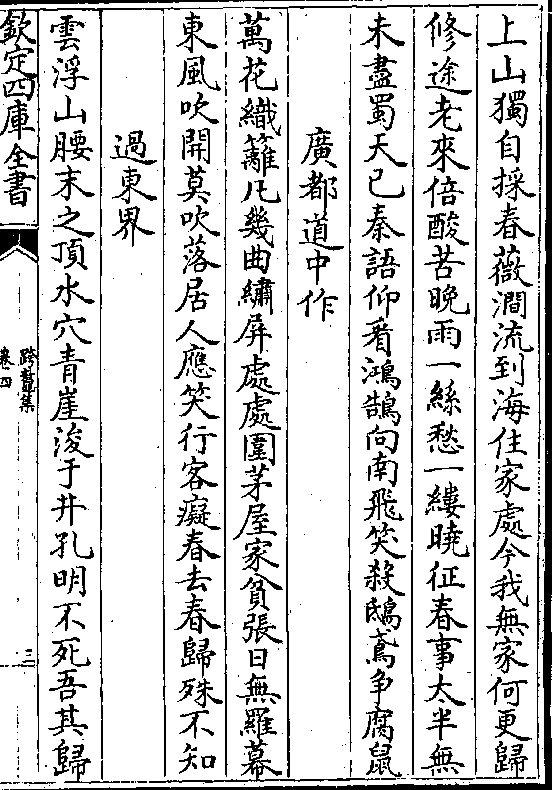 上山獨自採春薇澗流到海住家處今我無家何更歸
修途老來倍酸苦晚雨一絲愁一縷曉征春事太半無
未盡蜀天已秦語仰看鴻鵠向南飛笑殺鴟鳶争腐鼠
廣都道中作
萬花織籬凡幾曲繡屏處處圍茅屋家貧張日無羅幕
東風吹開莫吹落居人應笑行客癡春去春歸殊不知
過東界
雲浮山腰末之頂水穴青崖浚于井孔明不死吾其歸
欽定四庫全書
跨鼇集
卷四
三